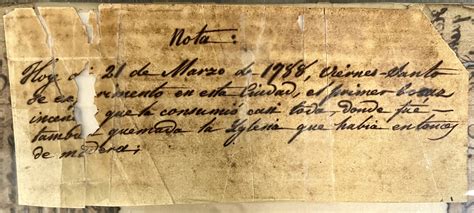 Nota:
Hoy di 21 de Marzo de 1788, Viernes-Santo
se experimento en esta Ciudad, el primer boraz
incen que la consumió casi toda, donde fué
tambi quemada la Iglesia que habia entonces
de madera;